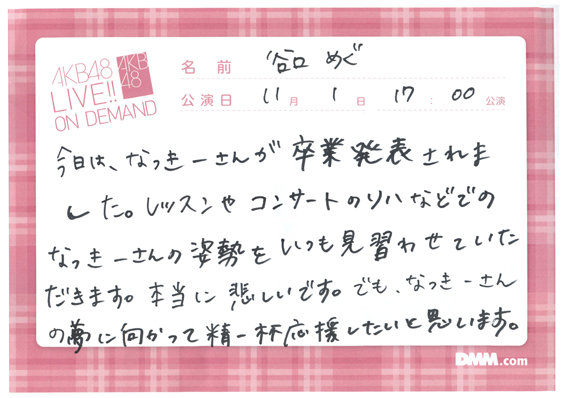 AKB48
LIVE!!
ON DEMAND
AKB
48
名前 谷口 めぐ
公演日 11月 1日 17:00公演
今日は、なっきーさんが卒業発表されま
した。レッスンやコンサートのリハなどでの
なっきーさんの姿勢をいつも見習わせていた
だきます。本当に悲しいです。でも、なっきーさん
の夢に向かって精一杯応援したいと思います。
DMM.com